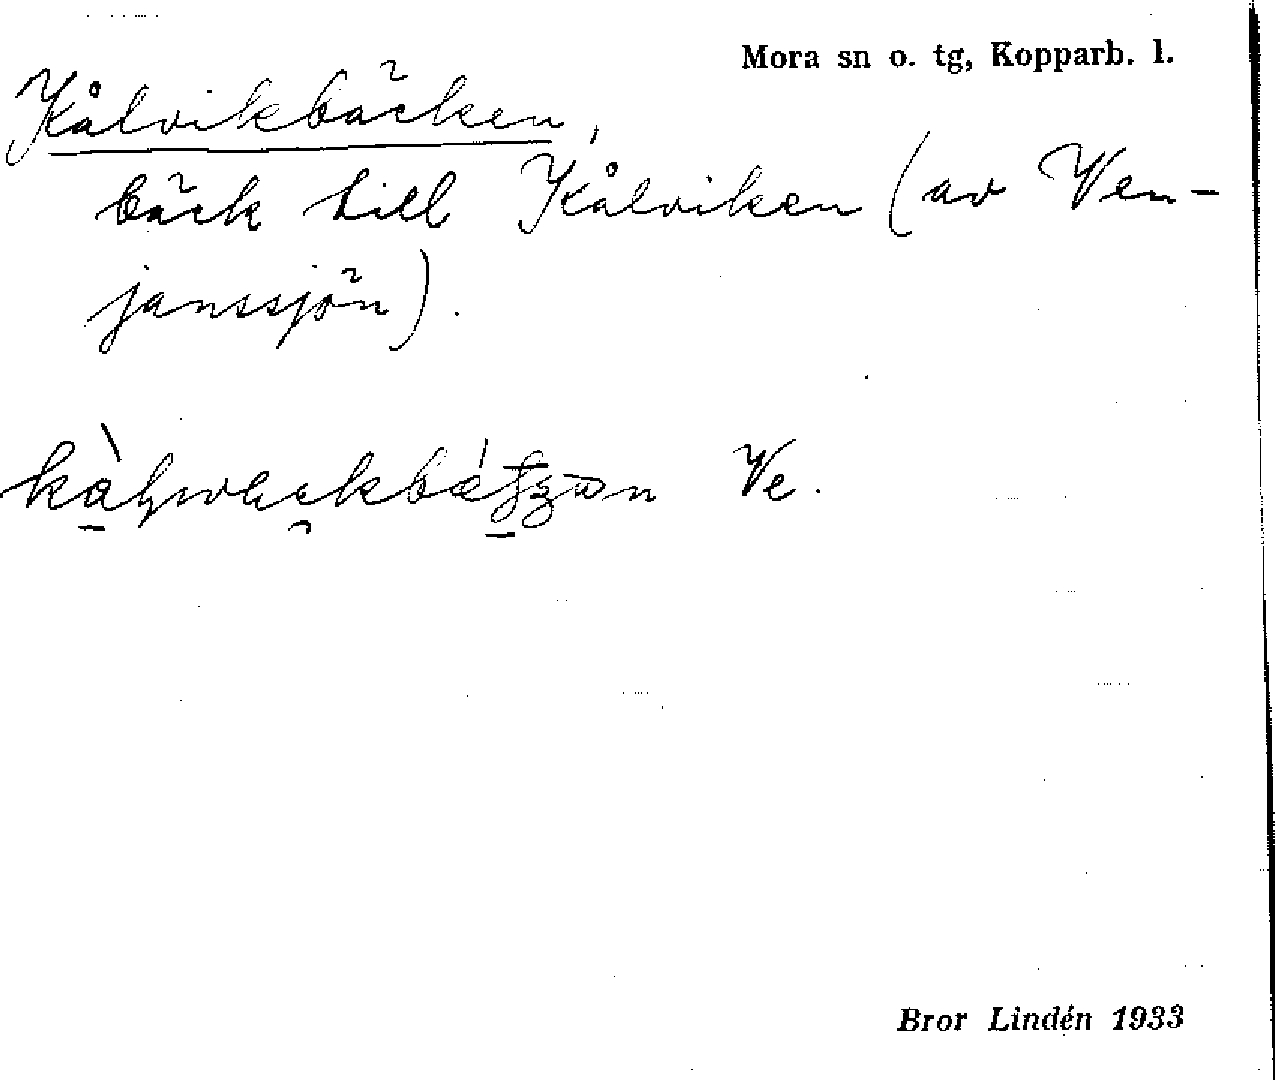 Mora sn o. tg, Kopparb. l.
Kålvikbäcken,
bäck till Kålviken (av Ven-
janssjön).
Ve.
Bror Lindén 1933